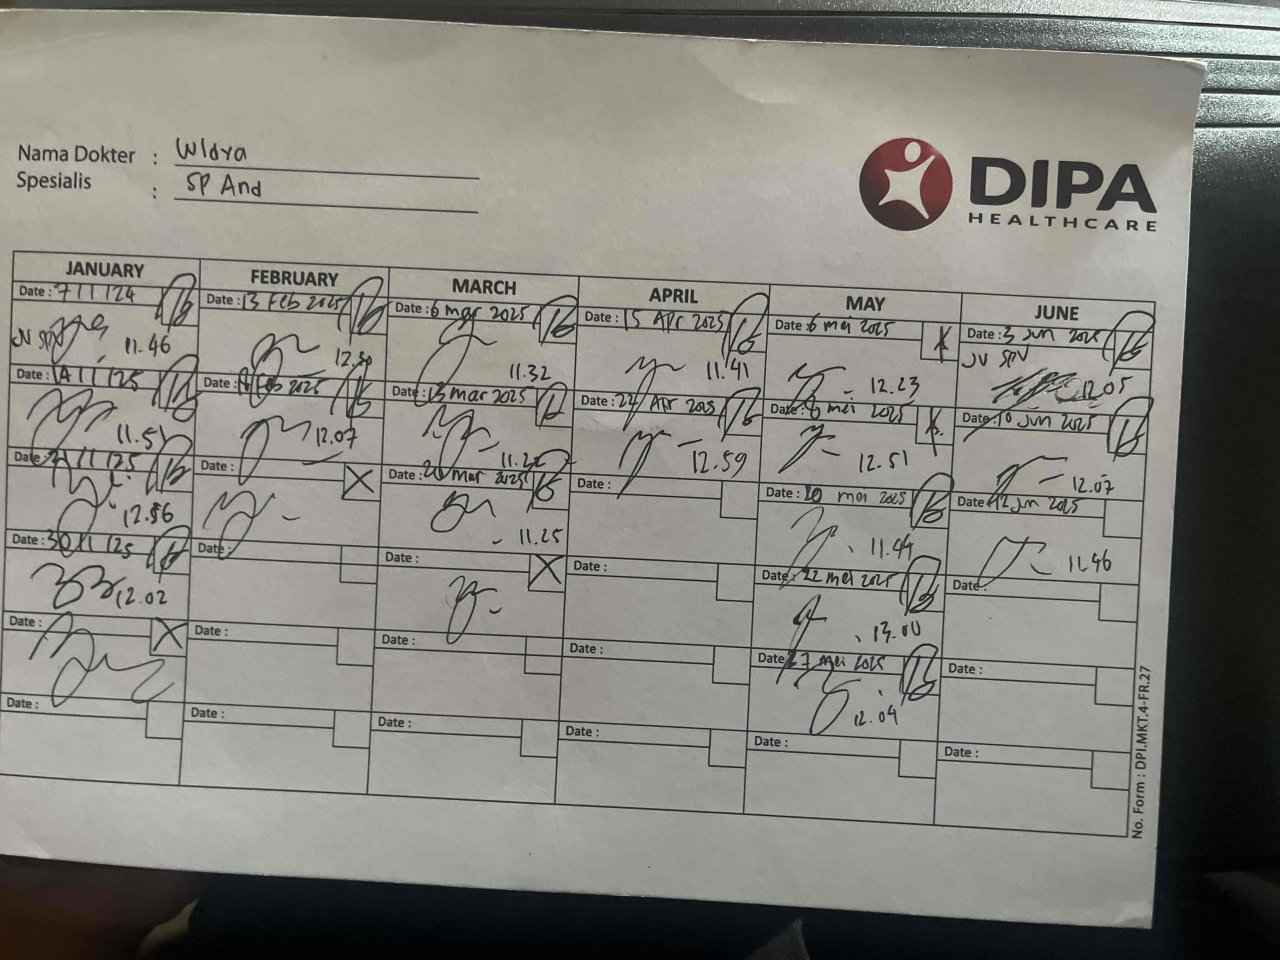 Nama Dokter : Widya
Spesialis : SP And
DIPA
HEALTHCARE
JANUARY
Date : 7/1/24
JV SPV
11.46
Date : 14/1/25
11.51
Date : 21/1/25
12.56
Date : 30/1/25
12.02
Date :
Date :
FEBRUARY
Date : 13 Feb 2025
Date : Feb 2025
12.07
Date :
Date :
Date :
Date :
MARCH
Date : 6 mar 2025
11.32
Date : 13 mar 2025
Date : mar 2025
11.25
Date :
Date :
Date :
APRIL
Date : 15 Apr 2025
11.41
Date : 22 Apr 2025
12.59
Date :
Date :
Date :
Date :
MAY
Date : 6 mei 2025
12.23
Date : 8 mei 2025
12.51
Date : 20 mei 2025
11.44
Date : 22 mei 2025
13.00
Date : 27 mei 2025
12.04
Date :
JUNE
Date : 3 Jun 2025
JV SPV
12.05
Date : 10 Jun 2025
12.07
Date : 12 Jun 2025
11.46
Date :
Date :
Date :
No. Form : DPI.MKT.4-FR.27